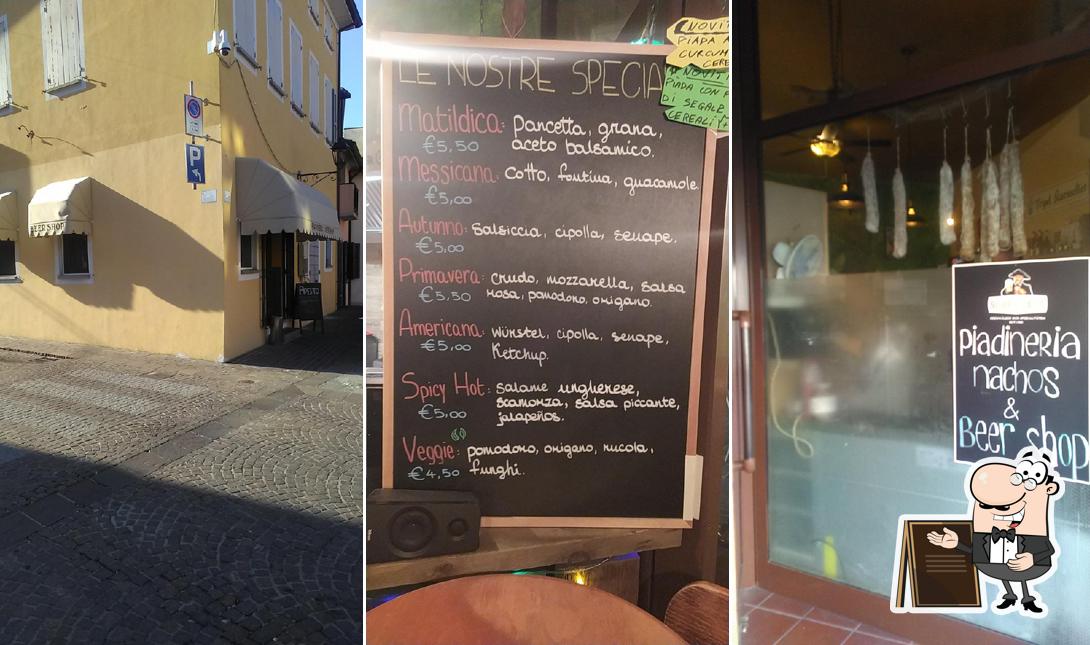 P
BEER SHOP
APERTO
LE NOSTRE SPECIA
NOVIT
PIADA A
CURCUM
CERE
NOVIT
PIADA CON F
DI SEGALE
CEREALI
Matildica: pancetta, grana,
€5,50 aceto balsamico.
Messicana: cotto, fontina, guacamole.
€5,00
Autunno: salsiccia, cipolla, senape.
€5,00
Primavera: crudo, mozzarella, salsa
€5,50 rosa, pomodoro, origano.
Americana: würstel, cipolla, senape,
€5,00 Ketchup.
Spicy Hot: salame ungherese,
€5,00 scamorza, salsa piccante,
jalapeños.
Veggie: pomodoro, origano, rucola,
€4,50 funghi.
Piadineria
nachos
&
Beer shop